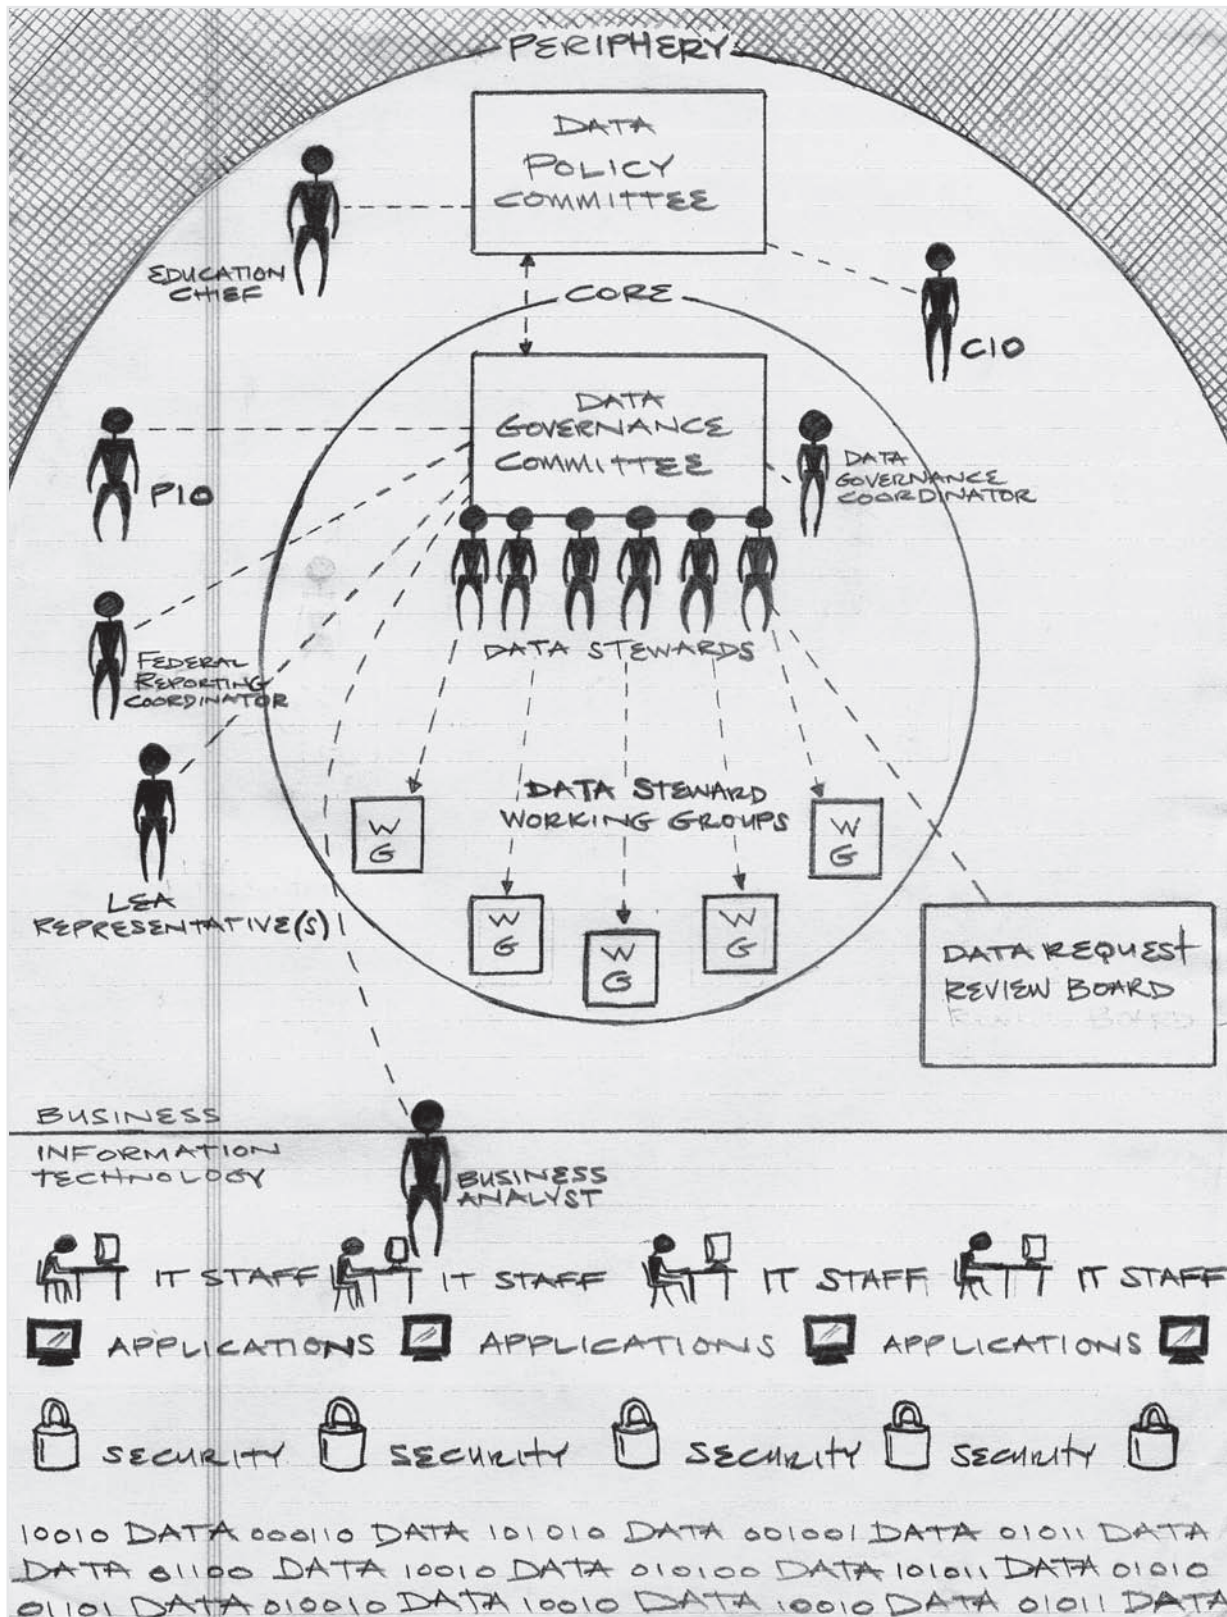 PERIPHERY
DATA
POLICY
COMMITTEE
EDUCATION
CHIEF
CORE
CIO
DATA
GOVERNANCE
COMMITTEE
PIO
DATA
GOVERNANCE
COORDINATOR
DATA STEWARDS
FEDERAL
REPORTING
COORDINATOR
DATA STEWARD
WORKING GROUPS
W
G
W
G
W
G
W
G
W
G
LEA
REPRESENTATIVE(S)
DATA REQUEST
REVIEW BOARD
REVIEW BOARD
BUSINESS
INFORMATION
TECHNOLOGY
BUSINESS
ANALYST
IT STAFF IT STAFF IT STAFF IT STAFF
APPLICATIONS APPLICATIONS APPLICATIONS
SECURITY SECURITY SECURITY SECURITY
10010 DATA 000110 DATA 101010 DATA 001001 DATA 01011 DATA
DATA 01100 DATA 10010 DATA 010100 DATA 101011 DATA 01010
01101 DATA 010010 DATA 10010 DATA 10010 DATA 01011 DATA